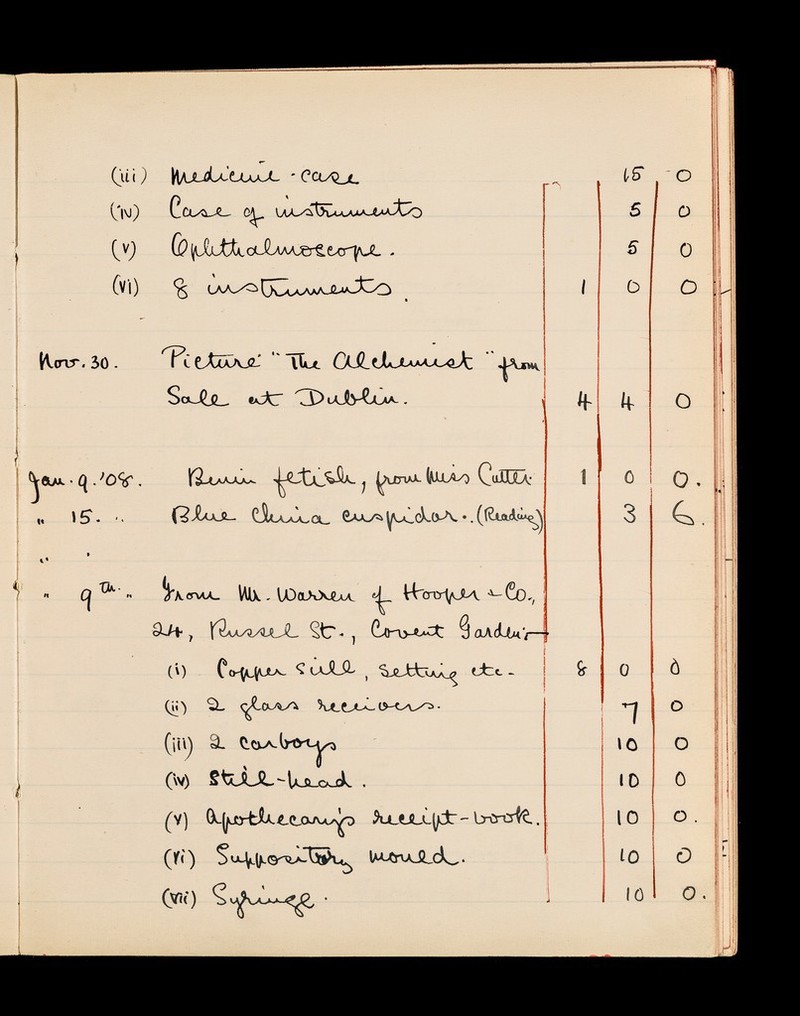 (iii) Medicine-case 15 0
(iv) Case of instruments 5 0
(v) Ophthalmoscope. 5 0
(vi) 8 instruments. 1 0 0
Nov. 30. Picture "The Alchemist" from
Sale at Dublin. 4 4 0
Jan. 9. '08. Benin fetish, from Miss Cutter. 1 0 0.
" 15. " Blue China cuspidor. (Reading) 3 6.
" "
" 9th. " From Mr. Warren of Hooper & Co.,
24, Russel St., Covent Garden:-
(i) Copper still, setting etc. 8 0 0
(ii) 2 glass receivers. 7 0
(iii) 2 carboys 10 0
(iv) Still-head. 10 0
(v) Apothecary's receipt-book. 10 0.
(vi) Suppository mould. 10 0
(vii) Syringe. 10 0.